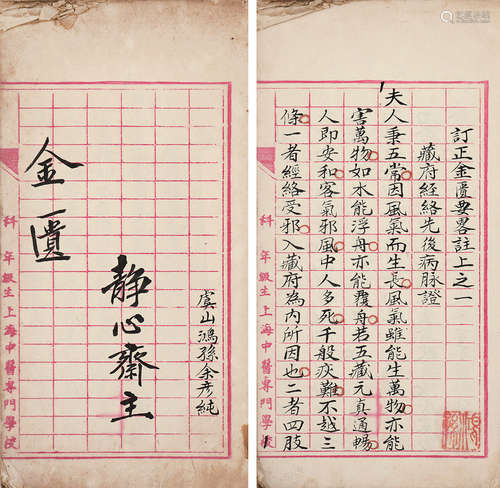 金匱
靜心齋主
虞山鴻孫余彥純
科 年級生 上海中醫專門學校
訂正金匱要畧註上之一
藏府經絡先後病脉證
夫人秉五常因風氣而生長風氣雖能生萬物亦能
害萬物如水能浮舟亦能覆舟若五藏元真通暢
人即安和客氣邪風中人多死千般疢難不越三
條一者經絡受邪入藏府為內所因也二者四肢
科 年級生 上海中醫專門學校